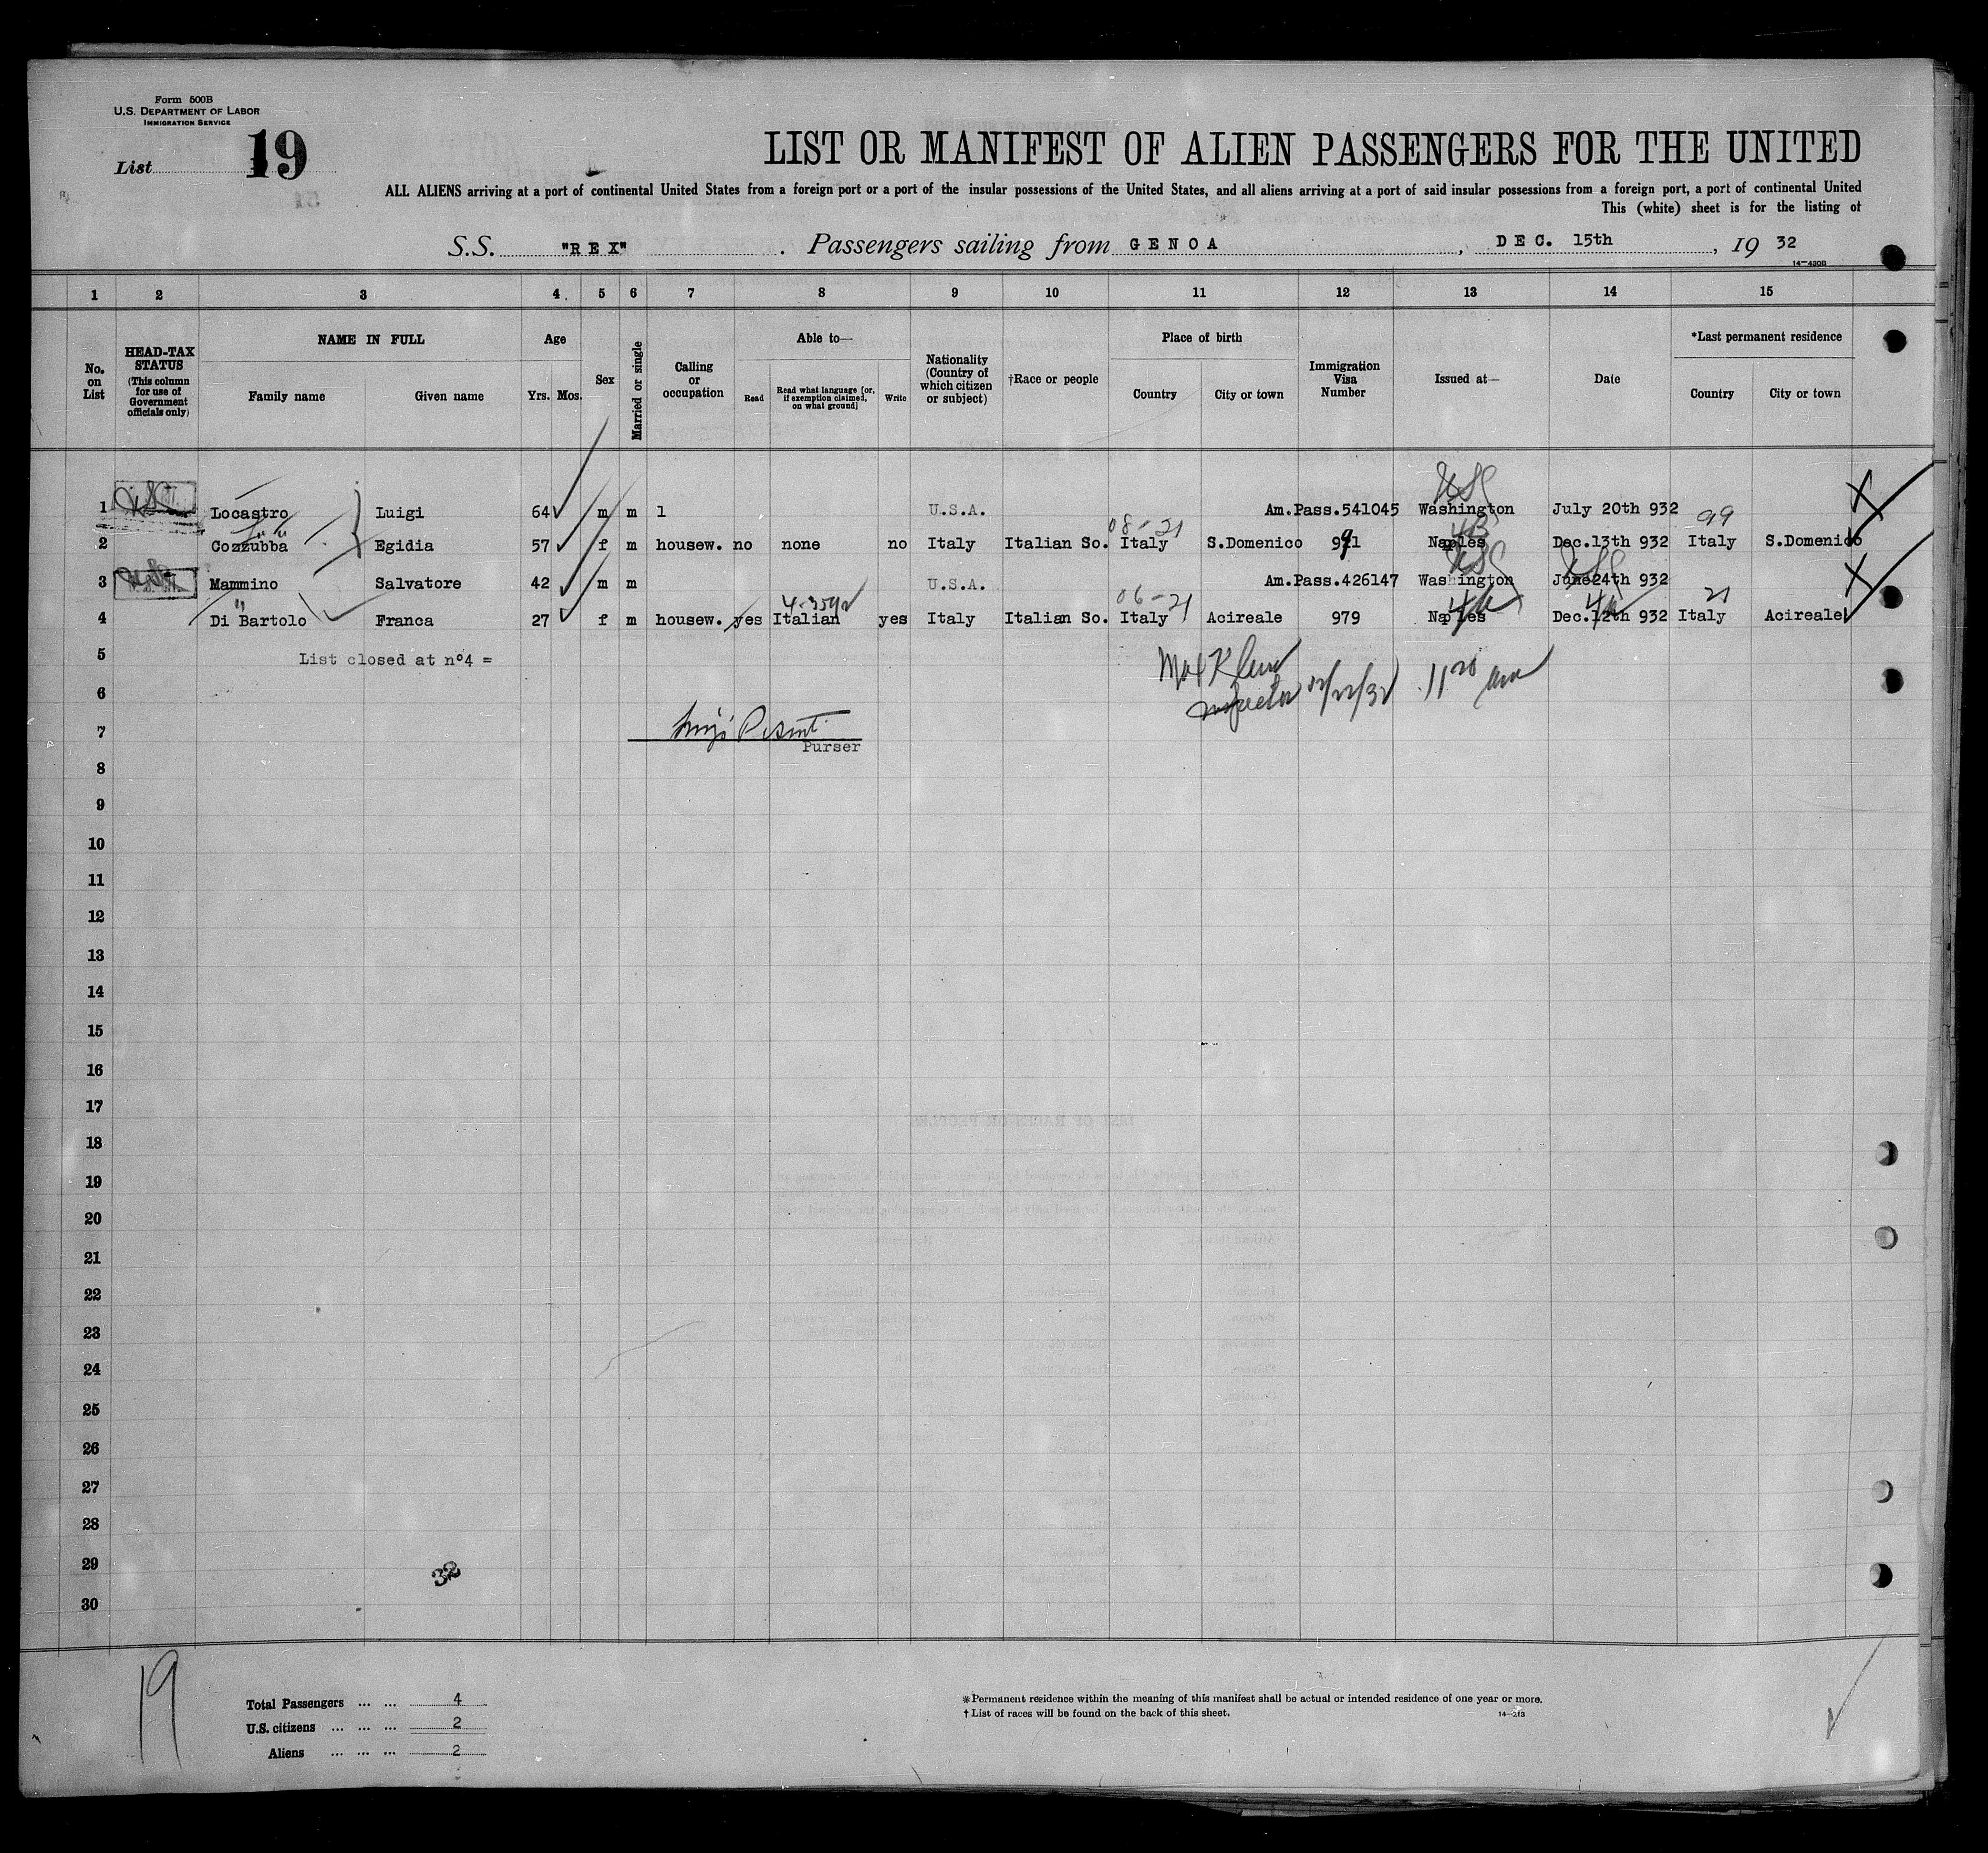 Form 500B
U.S. DEPARTMENT OF LABOR
IMMIGRATION SERVICE
List 19
LIST OR MANIFEST OF ALIEN PASSENGERS FOR THE UNITED
ALL ALIENS arriving at a port of continental United States from a foreign port or a port of the insular possessions of the United States, and all aliens arriving at a port of said insular possessions from a foreign port, a port of continental United
This (white) sheet is for the listing of
S.S. "REX" . Passengers sailing from GENOA , DEC. 15th , 19 32
14—430B
1 2 3 4 5 6 7 8 9 10 11 12 13 14 15
No. on List
HEAD-TAX STATUS (This column for use of Government officials only)
NAME IN FULL
Family name Given name
Age
Yrs. Mos.
Sex
Married or single
Calling or occupation
Able to—
Read Read what language [or, if exemption claimed, on what ground] Write
Nationality (Country of which citizen or subject)
†Race or people
Place of birth
Country City or town
Immigration Visa Number
Issued at—
Date
*Last permanent residence
Country City or town
1 Locastro Luigi 64 m m l U.S.A. Am.Pass.541045 Washington July 20th 932 99
08-21
2 Cozzubba Egidia 57 f m housew. no none no Italy Italian So. Italy S.Domenico 991 Naples Dec.13th 932 Italy S.Domenico
3 Mammino Salvatore 42 m m U.S.A. Am.Pass.426147 Washington June24th 932
06-21 21
4 Di Bartolo Franca 27 f m housew. yes Italian yes Italy Italian So. Italy Acireale 979 Naples Dec.12th 932 Italy Acireale
5 List closed at nº4 =
Inspector 12/22/32 11 20 am
6
7
Purser
8
9
10
11
12
13
14
15
16
17
18
19
20
21
22
23
24
25
26
27
28
29
32
30
19
Total Passengers ... ... 4
U.S. citizens ... ... ... 2
Aliens ... ... ... 2
*Permanent residence within the meaning of this manifest shall be actual or intended residence of one year or more.
† List of races will be found on the back of this sheet.
14—213